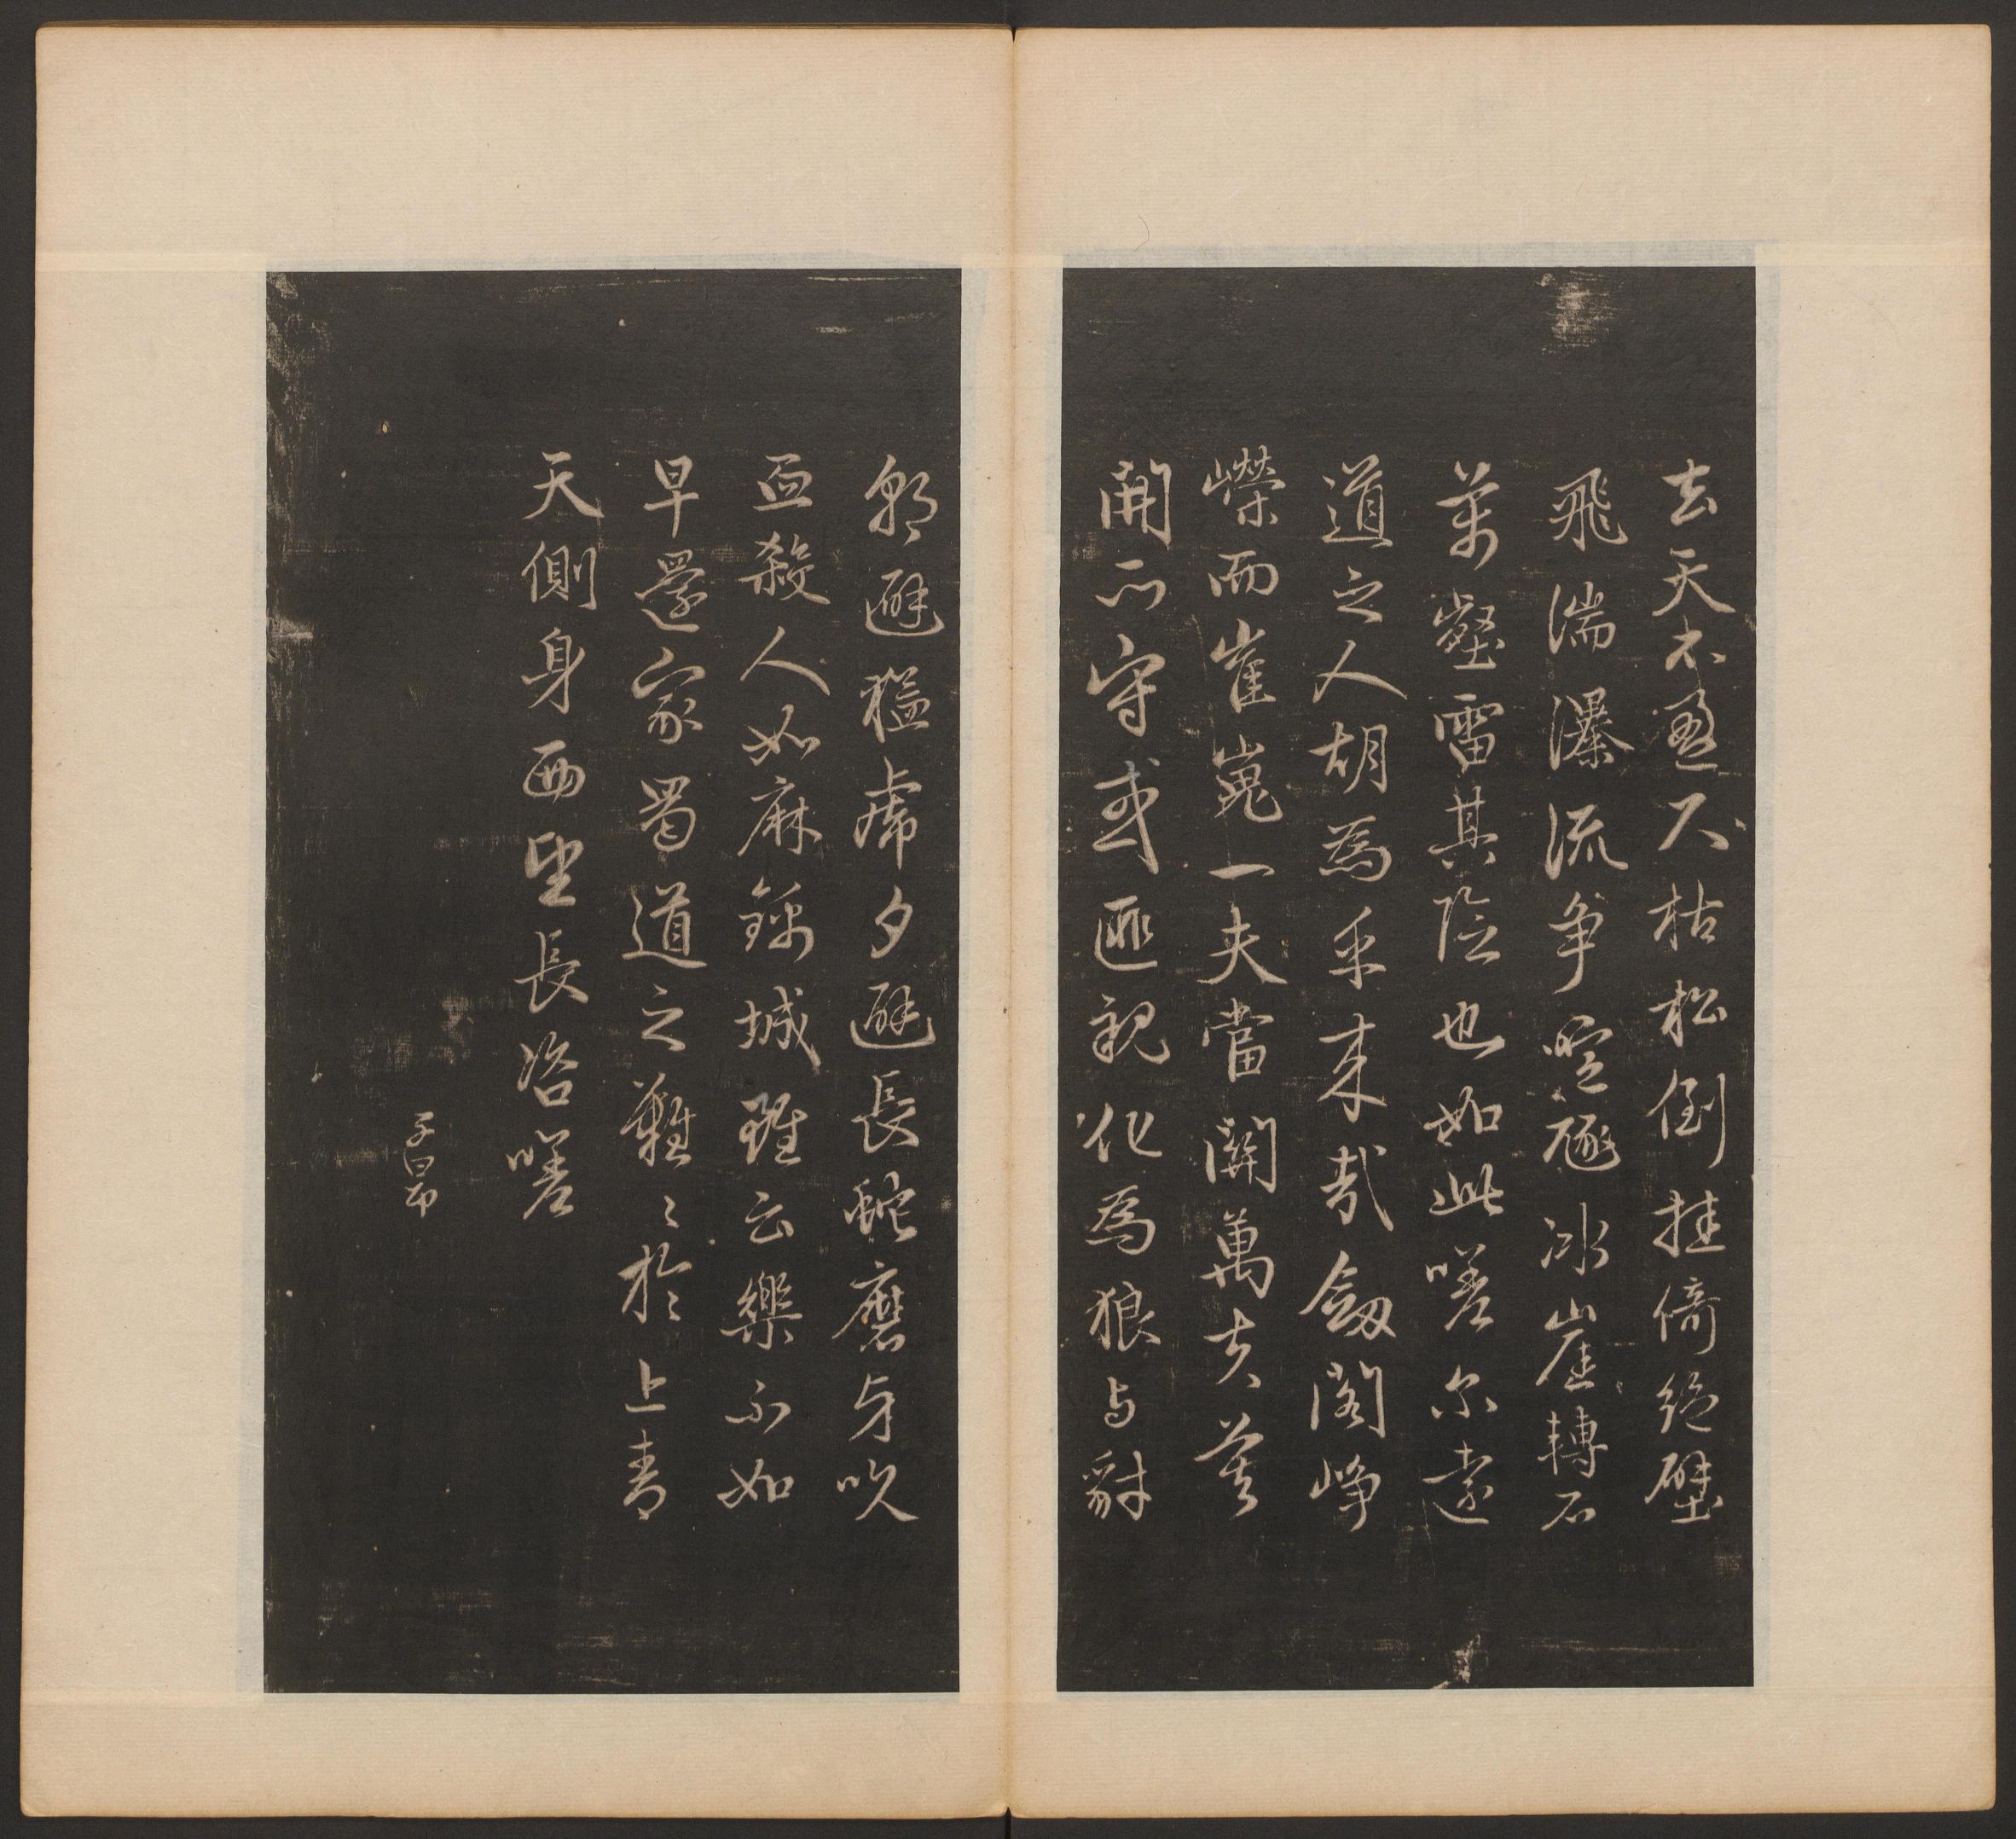 去天不盈尺枯松倒挂倚絶壁
飛湍瀑流争喧豗冰崖轉石
萬壑雷其險也如此嗟尔遠
道之人胡為乎来哉劔閣崢
嶸而崔嵬一夫當關萬夫莫
開所守或匪親化為狼与豺
朝避猛虎夕避長蛇磨牙吮
血殺人如麻錦城雖云樂不如
早還家蜀道之難〻於上青
天側身西望長咨嗟
子昂